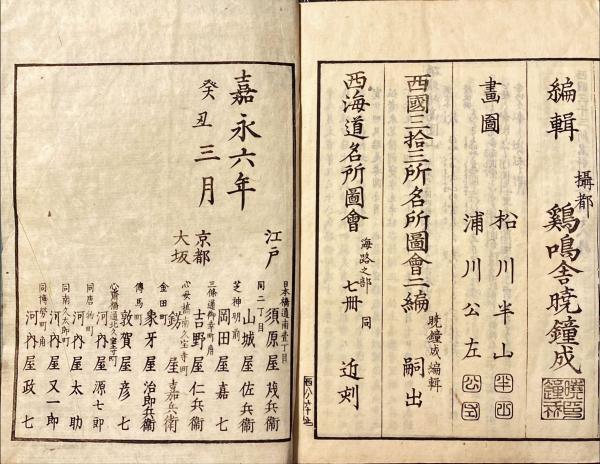 編輯 攝都 鷄鳴舎暁鐘成
畫圖 松川半山 半山
浦川公左 公左
西國三拾三所名所圖會三編 暁鐘成編輯 嗣出
西海道名所圖會 海路之部 七冊 同 近刻
嘉永六年
癸丑三月
江戸 日本橋通南壹丁目 須原屋茂兵衛
同二丁目 山城屋佐兵衛
芝神明前 岡田屋嘉七
京都 三條通御幸町角 吉野屋仁兵衛
大坂 南久宝寺町 錺屋嘉兵衛
金田町 象牙屋治郎兵衛
傳馬町 敦賀屋彦七
心齋橋通北久宝寺町 河内屋源七郎
同唐物町 河内屋太助
同南久太郎町 河内屋又一郎
同博勞町角 河内屋政七